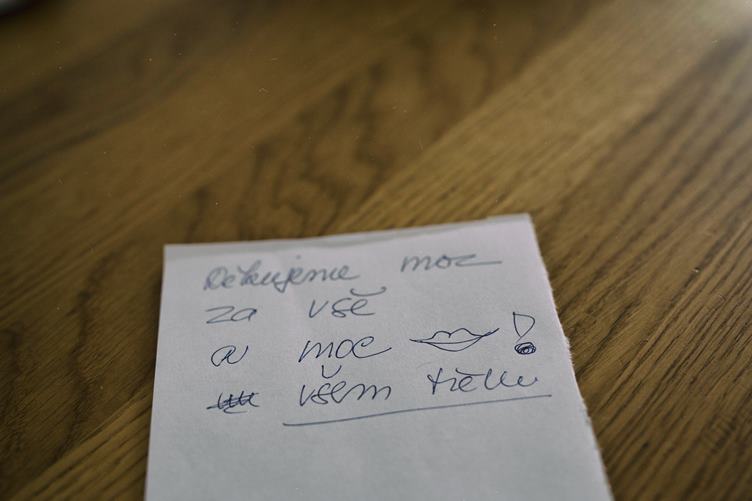 Děkujeme moc
za vše
a moc !
všem